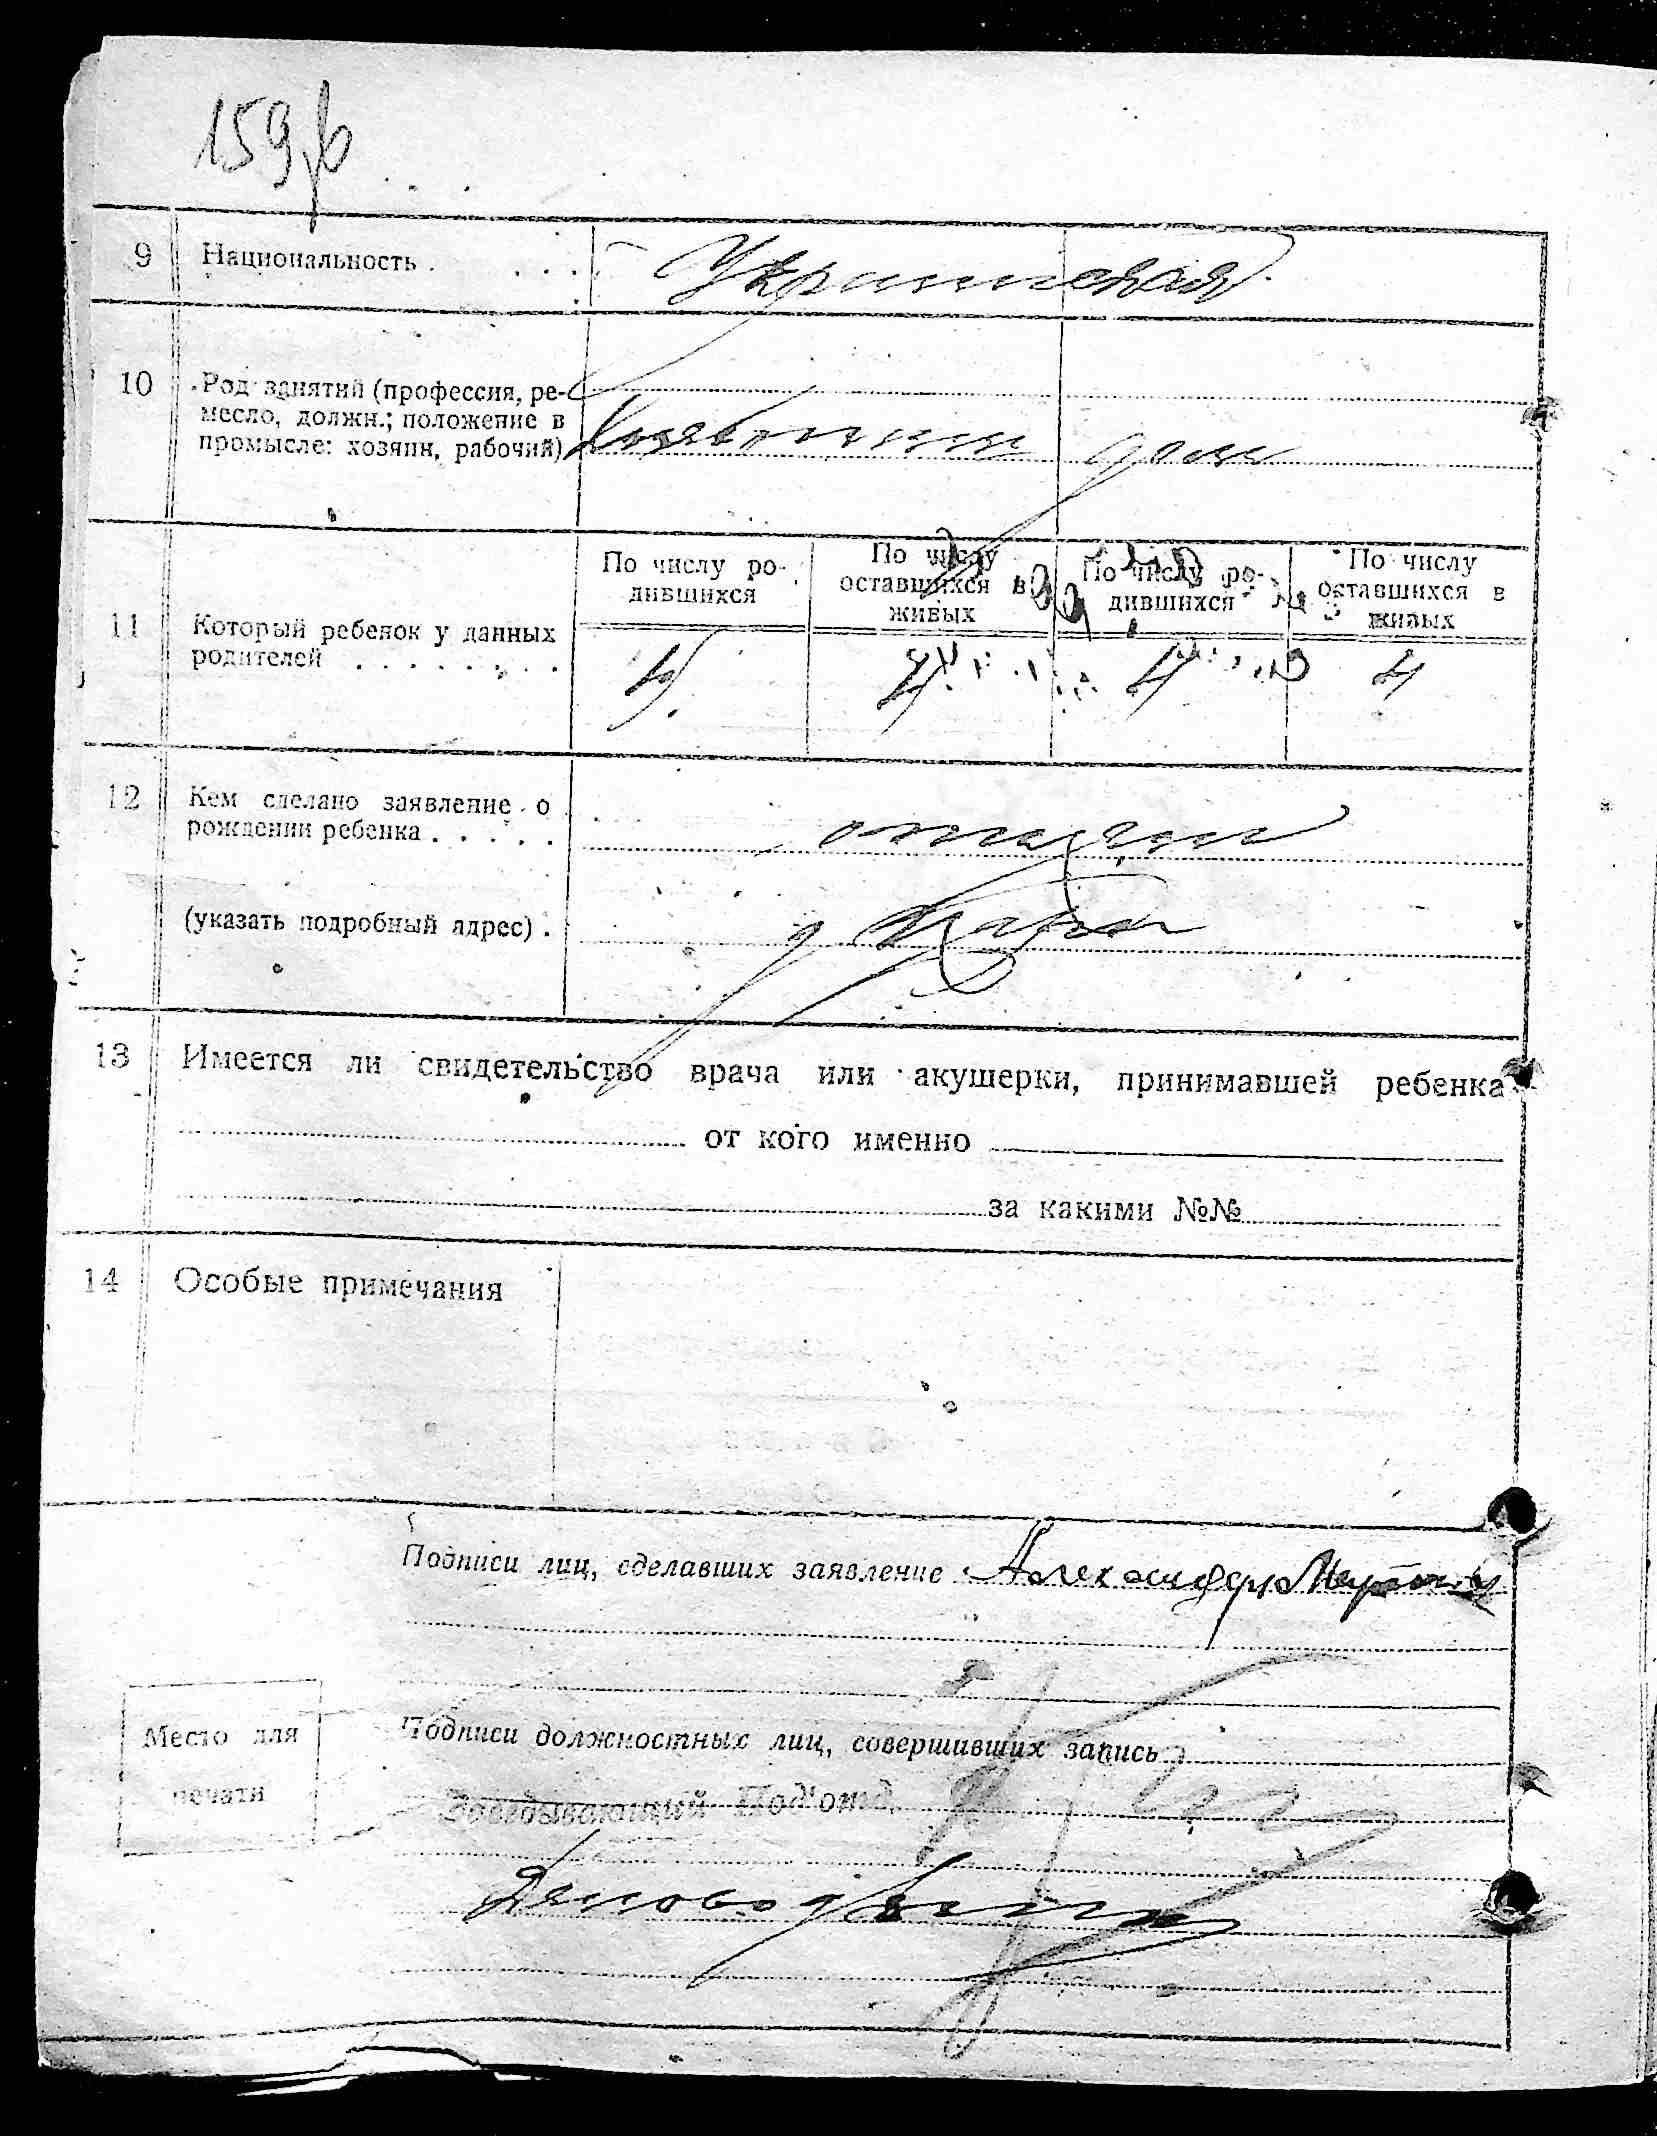 159
9 Национальность . . . . .
10 Род занятий (профессия, ре-
месло, должн.; положение в
промысле: хозяин, рабочий)
дом
По числу ро-
дившихся
По числу
оставшихся в
живых
По числу ро-
дившихся
По числу
оставшихся в
живых
11 Который ребенок у данных
родителей . . . . . . . .
4 4 4
12 Кем сделано заявление о
рождении ребенка . . . . .
отцом
(указать подробный адрес) .
13 Имеется ли свидетельство врача или акушерки, принимавшей ребенка
от кого именно
за какими №№
14 Особые примечания
Подписи лиц, сделавших заявление Александр
Место для
печати
Подписи должностных лиц, совершивших запись
Заведывающий Под'отд.